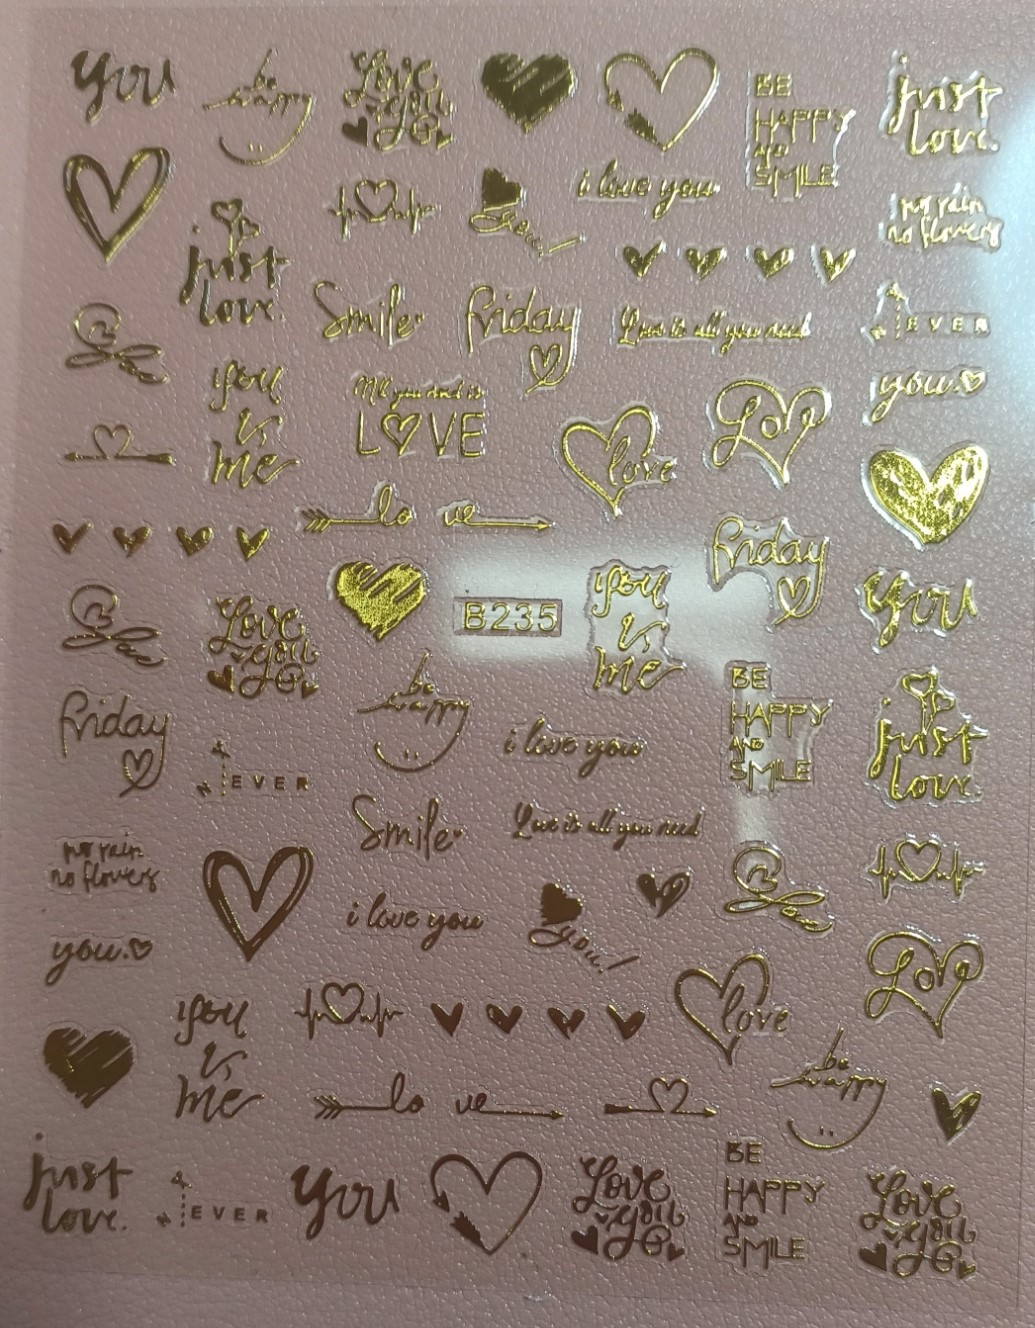 you
be
happy
Love
you
BE
HAPPY
AND
SMILE
just
love.
i love you
you!
no rain
no flowers
just
love.
Smile
friday
Love is all you need
EVER
you.
you
is
me
All you need is
LOVE
love
Love
lo ve
friday
you
is
me
you
B235
Love
you
be
happy
BE
HAPPY
AND
SMILE
just
love.
friday
i love you
N EVER
Smile
Love is all you need
no rain
no flowers
i love you
you!
you.
Love
love
you
is
me
be
happy
lo ve
just
love.
N EVER
you
Love
you
BE
HAPPY
AND
SMILE
Love
you